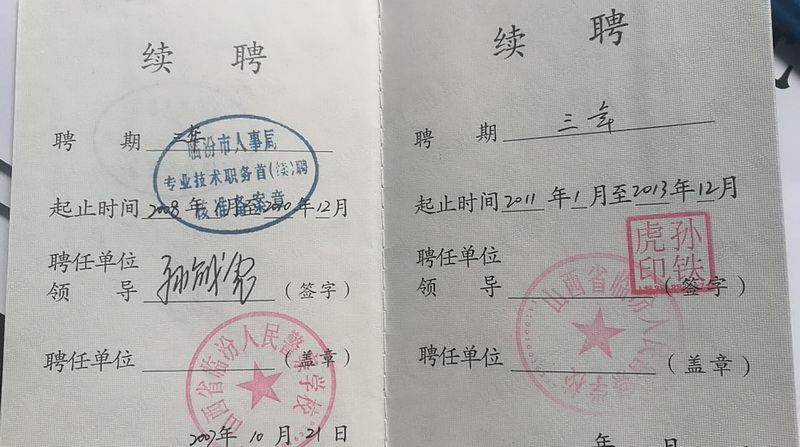 续聘
聘期 三年
临汾市人事局
专业技术职务首(续)聘
核准备案章
起止时间 2008年1月至2010年12月
聘任单位
领导 (签字)
聘任单位 (盖章)
山西省临汾人民警察学校
2007年10月21日
续聘
聘期 三年
起止时间 2011年1月至2013年12月
聘任单位
领导 (签字)
孙铁虎印
聘任单位 (盖章)
山西省临汾人民警察学校
年 月